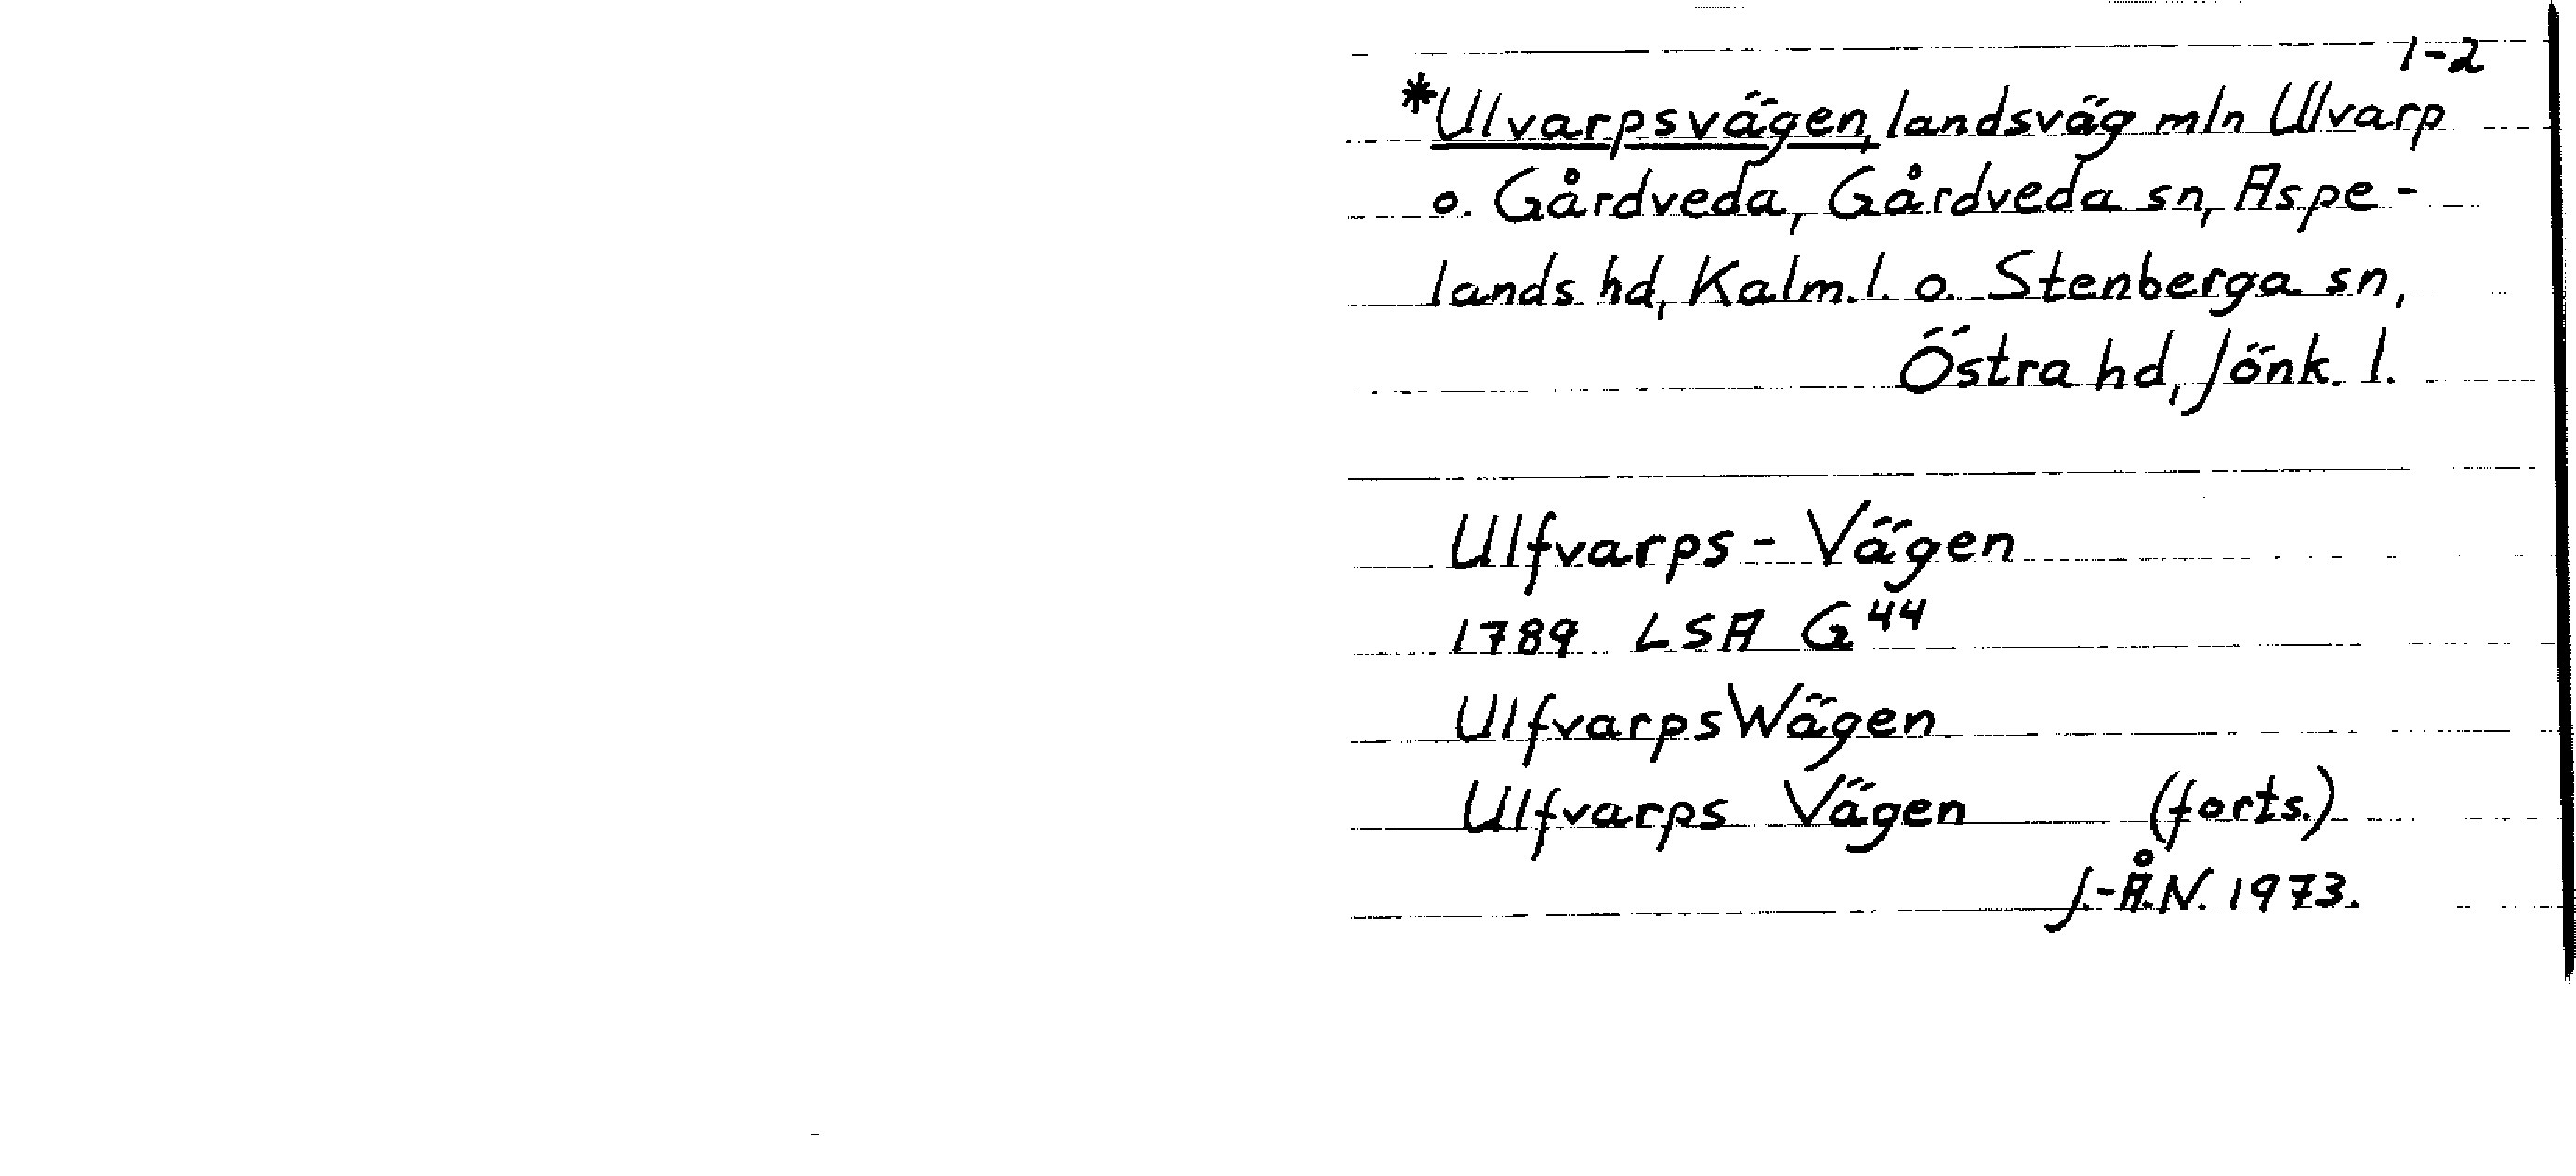 1-2
*Ulvarpsvägen, landsväg mln Ulvarp
o. Gårdveda, Gårdveda sn, Aspe-
lands hd, Kalm. l. o. Stenberga sn,
Östra hd, Jönk. l.
Ulfvarps - Vägen
1789 LSA G44
UlfvarpsWägen
Ulfvarps Vägen (forts.)
J.-Å.N. 1973.